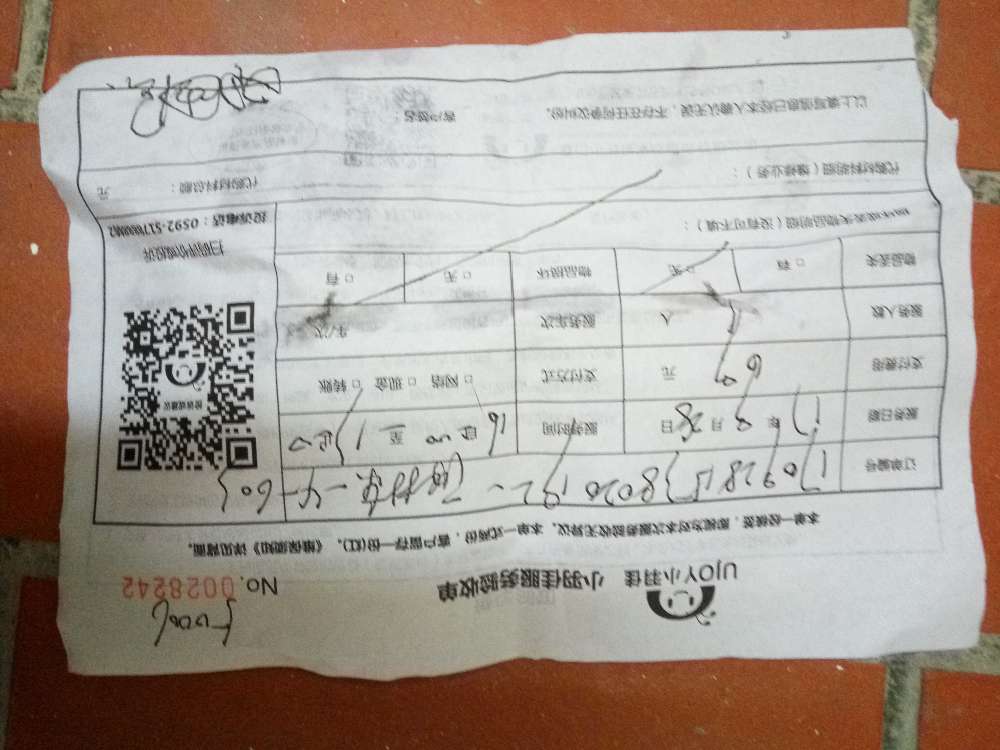 F0006
UJOY小羽佳 小羽佳服务验收单 No.0028242
本单一经核签，即视为对本次服务验收无异议。本单一式两份，客户留存一份(红)。《维保须知》详见背面。
订单编号
服务日期 17年 9月28日 服务时间 16 00 至 17
支付费用 60 元 支付方式 □网络 □现金 □转账
服务人数 1 人 服务车次 车/次
物品丢失 □有 □无 物品损坏 □无 □有
损坏或丢失物品明细（没有可不填）：
扫码评价或投诉
投诉电话：0592-5178882
代购材料明细（维修业务）： 代购材料总额： 元
以上填写信息已经本人确认无误，不存在任何争议纠纷。 客户签名：